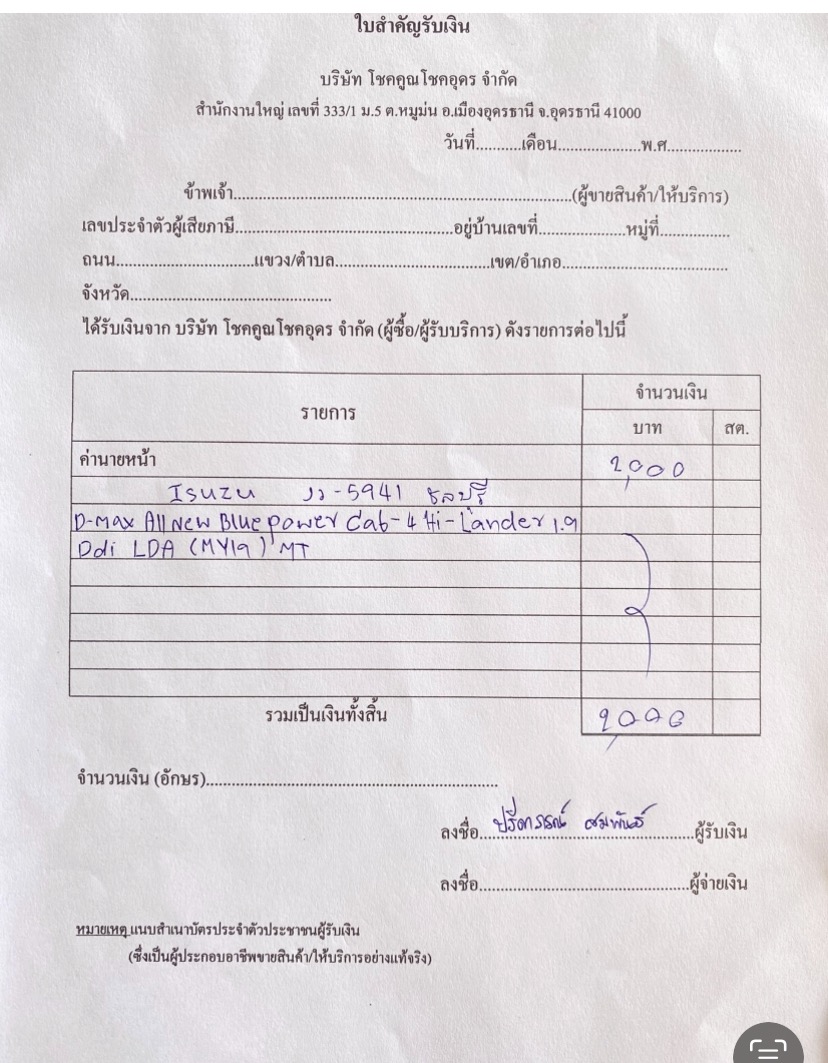 ใบสำคัญรับเงิน
บริษัท โชคคูณโชคอุดร จำกัด
สำนักงานใหญ่ เลขที่ 333/1 ม.5 ต.หมูม่น อ.เมืองอุดรธานี จ.อุดรธานี 41000
วันที่..........เดือน....................พ.ศ..................
ข้าพเจ้า..........................................................................(ผู้ขายสินค้า/ให้บริการ)
เลขประจำตัวผู้เสียภาษี................................................อยู่บ้านเลขที่....................หมู่ที่................
ถนน...............................แขวง/ตำบล...................................เขต/อำเภอ......................................
จังหวัด.............................................
ได้รับเงินจาก บริษัท โชคคูณโชคอุดร จำกัด (ผู้ซื้อ/ผู้รับบริการ) ดังรายการต่อไปนี้
รายการ จำนวนเงิน
บาท สต.
ค่านายหน้า 2,000
Isuzu -5941 ชลบุรี
D-max All New Blue power Cab-4 Hi-Lander 1.9
Ddi LDA (MY19) MT
รวมเป็นเงินทั้งสิ้น 2,000
จำนวนเงิน (อักษร)..................................................................
ลงชื่อ..............................................ผู้รับเงิน
ลงชื่อ..............................................ผู้จ่ายเงิน
หมายเหตุ แนบสำเนาบัตรประจำตัวประชาชนผู้รับเงิน
(ซึ่งเป็นผู้ประกอบอาชีพขายสินค้า/ให้บริการอย่างแท้จริง)